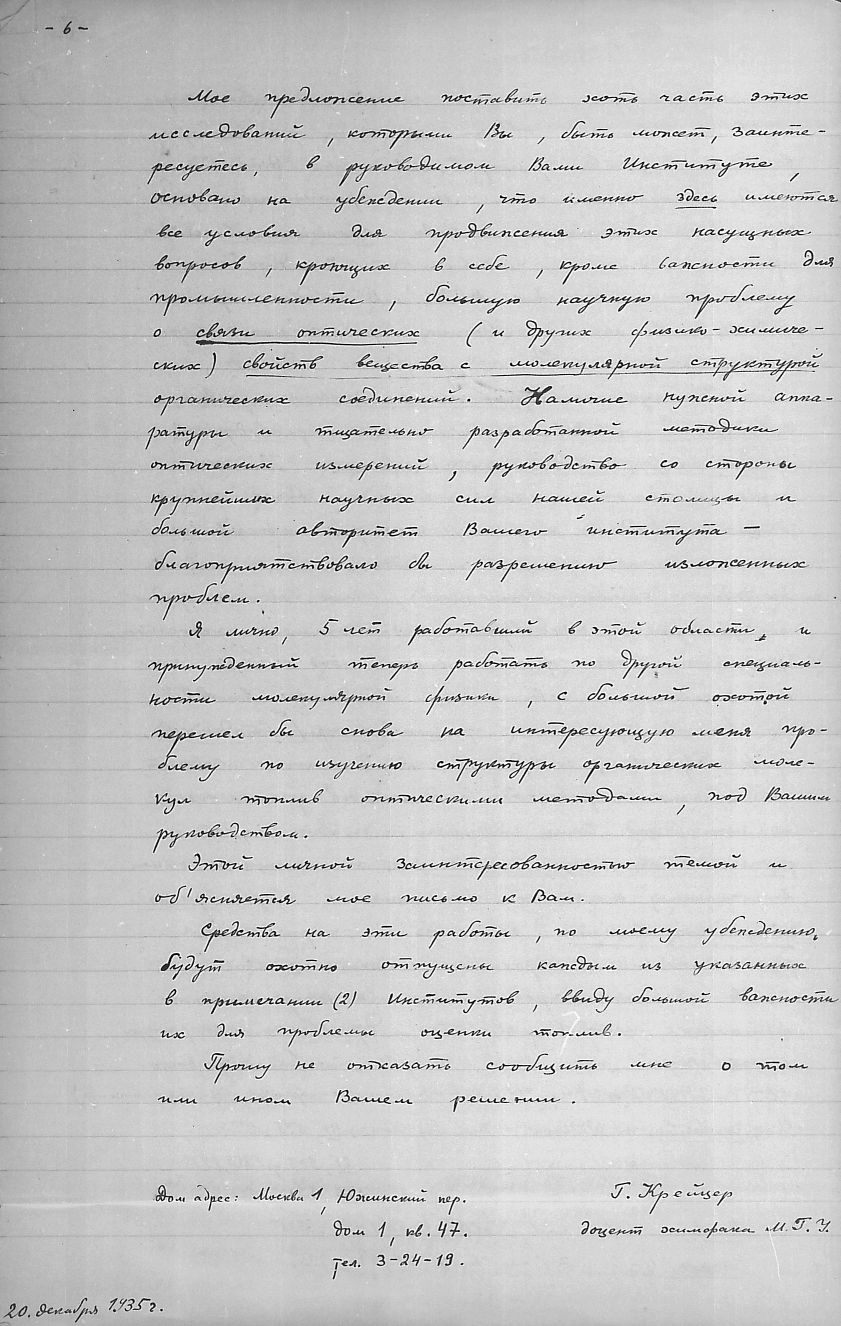 - 6 -
Мое предложение поставить хоть часть этих
исследований, которыми Вы, быть может, заинте-
ресуетесь, в руководимом Вами Институте,
основано на убеждении, что именно здесь имеются
все условия для продвижения этих насущных
вопросов, кроющих в себе, кроме важности для
промышленности, большую научную проблему
о связи оптических (и других физико-химиче-
ских) свойств вещества с молекулярной структурой
органических соединений. Наличие нужной аппа-
ратуры и тщательно разработанной методики
оптических измерений, руководство со стороны
крупнейших научных сил нашей столицы и
большой авторитет Вашего института —
благоприятствовало бы разрешению изложенных
проблем.
Я лично, 5 лет работавший в этой области, и
принужденный теперь работать по другой специаль-
ности молекулярной физики, с большой охотой
перешел бы снова на интересующую меня про-
блему по изучению структуры органических моле-
кул топлив оптическими методами, под Вашим
руководством.
Этой личной заинтересованностью темой и
об'ясняется мое письмо к Вам.
Средства на эти работы, по моему убеждению,
будут охотно отпущены каждым из указанных
в примечании (2) Институтов, ввиду большой важности
их для проблемы оценки топлив.
Прошу не отказать сообщить мне о том
или ином Вашем решении.
Дом адрес: Москва 1, Южинский пер.
дом 1, кв. 47.
тел. 3-24-19.
Г. Крейцер
доцент химфака М.Г.У.
20. декабря 1935 г.